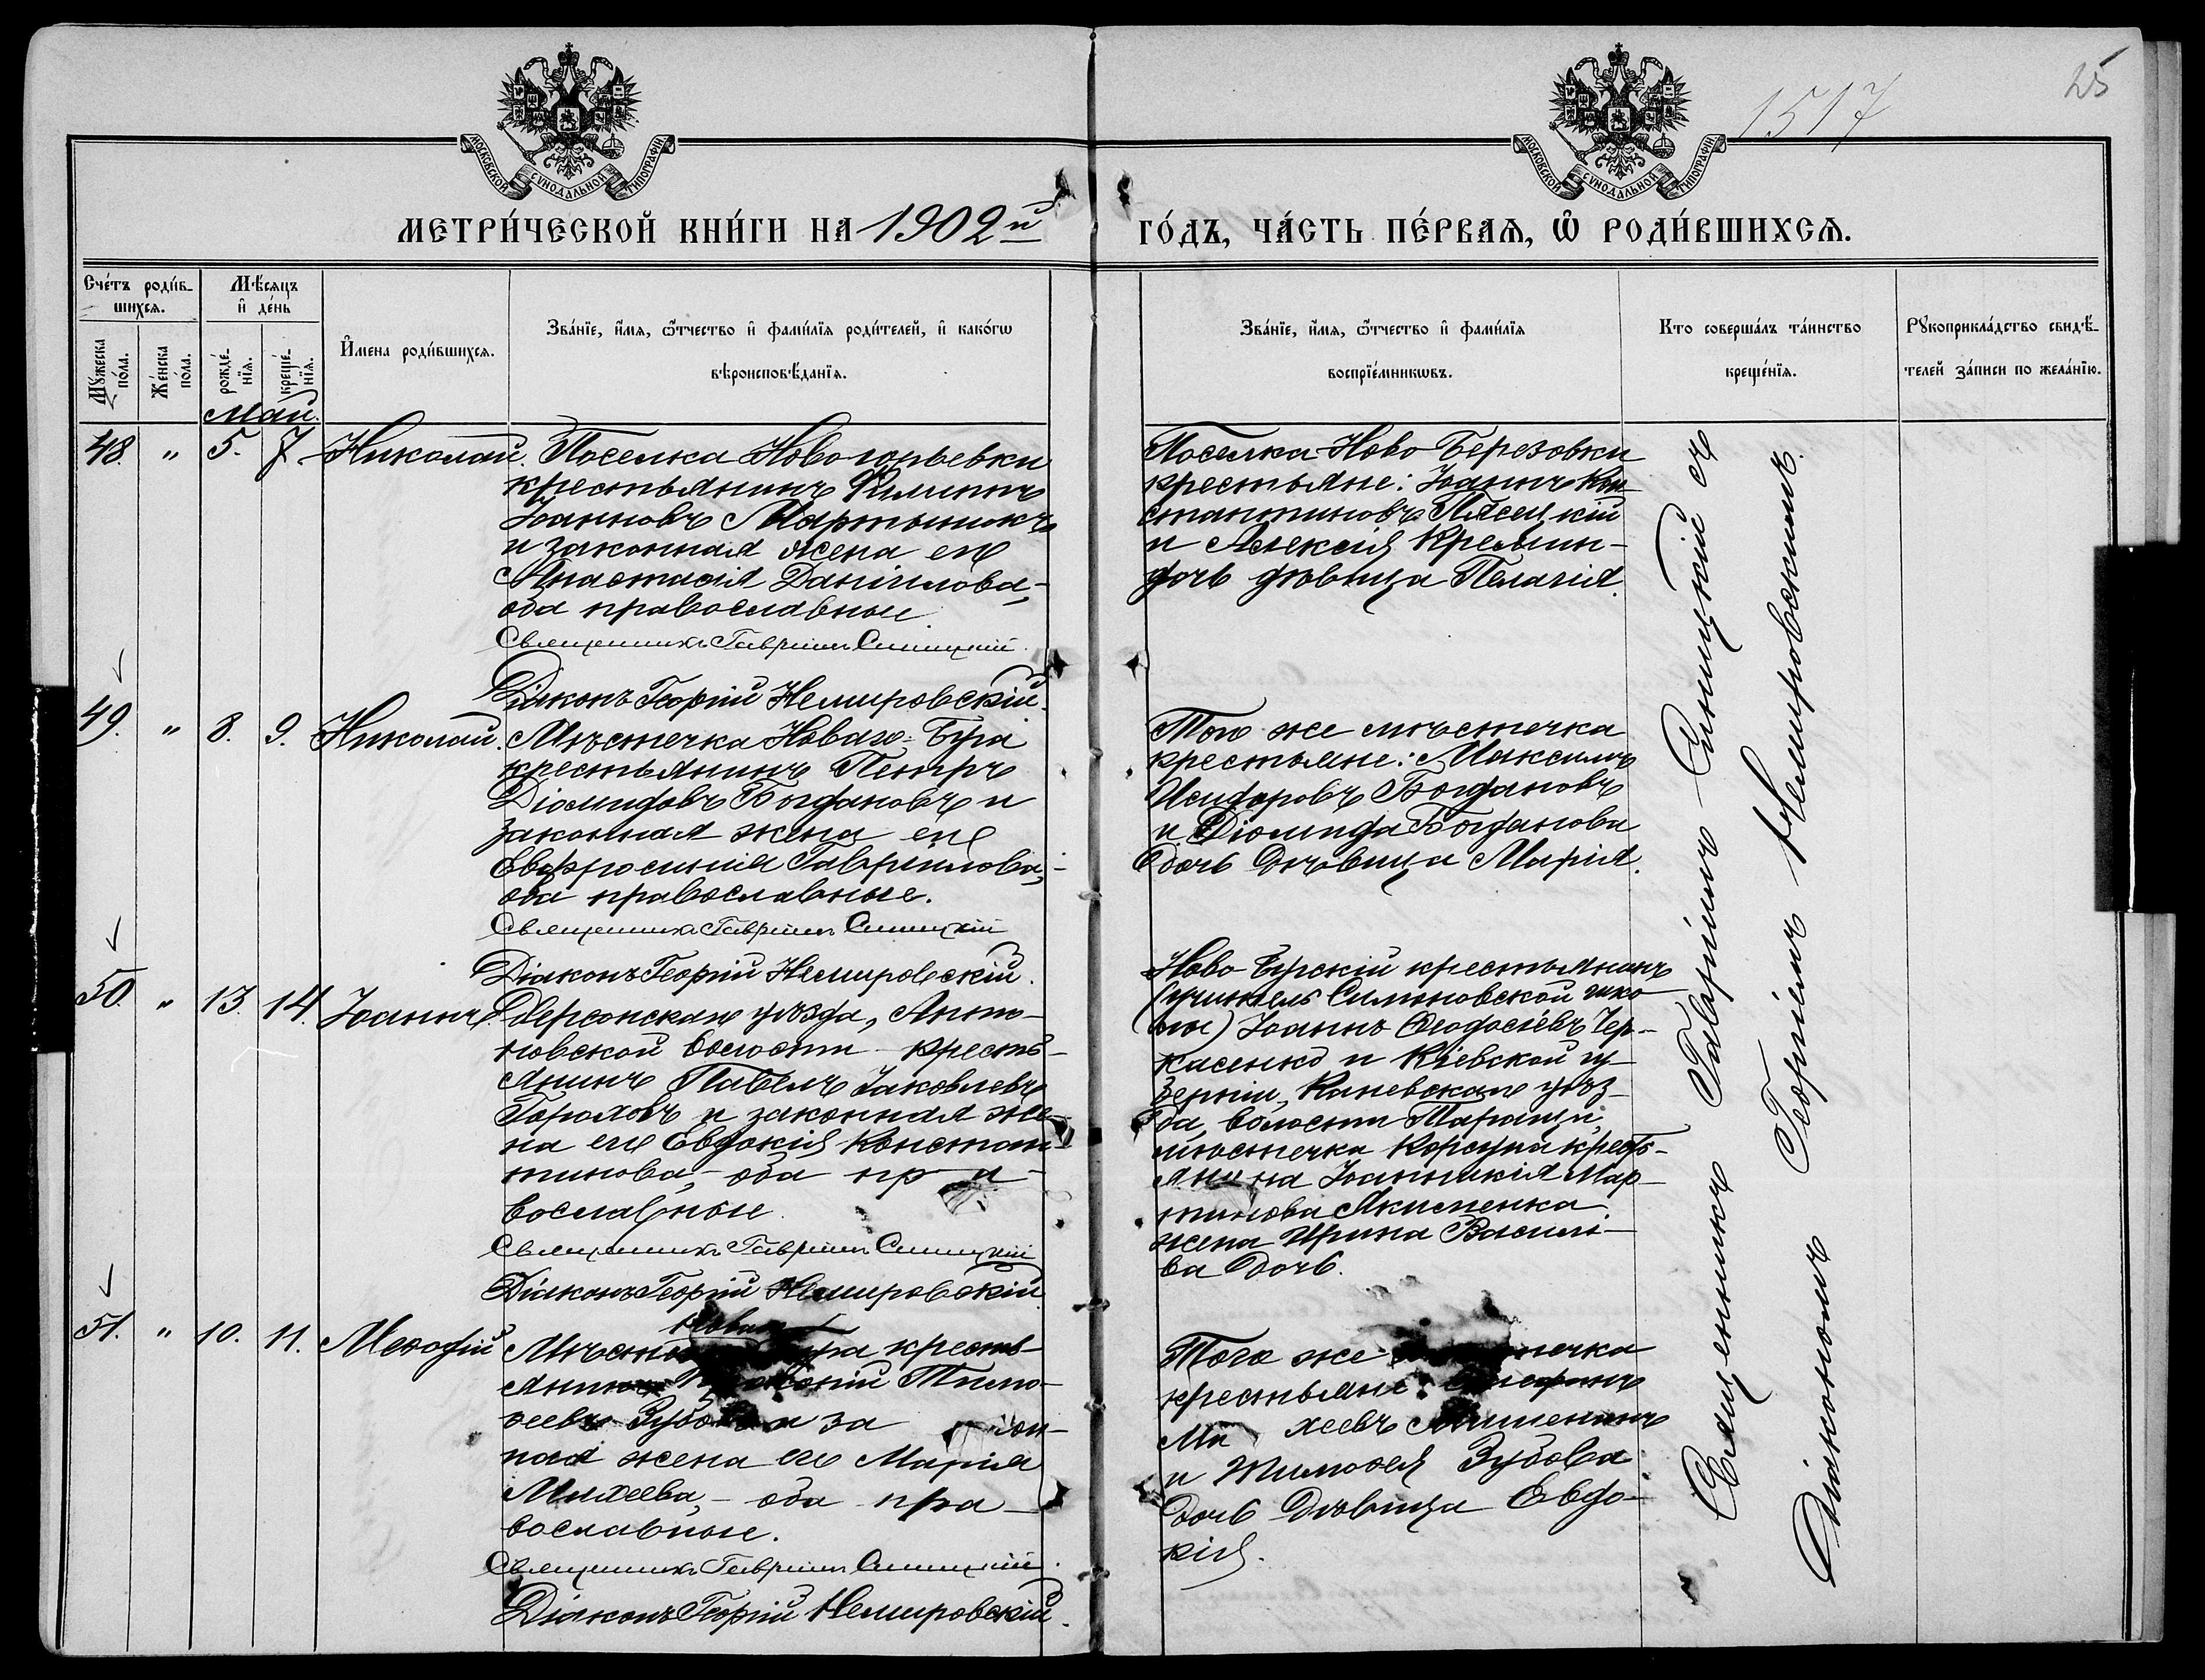 1517
25
МОСКОВСКОЙ СУНОДАЛЬНОЙ ТИПОГРАФІИ
МОСКОВСКОЙ СУНОДАЛЬНОЙ ТИПОГРАФІИ
МЕТРИ́ЧЕСКОЙ КНИ́ГИ НА 1902й
ГО́ДЪ, ЧА́СТЬ ПЕ́РВАѦ, Ѽ РОДИ́ВШИХСѦ.
Счéтъ роди́в-
шихсѧ.
Мꙋжеска по́ла.
Же́нска по́ла.
Мѣ́сѧцъ
и де́нь
рожде́-
нїѧ.
креще́-
нїѧ.
И҆мена роди́вшихсѧ.
Зва́нїе, и҆́мѧ, ѻ҆́тчество и҆ фами́лїѧ роди́телей, и҆ како́гѡ
вѣроисповѣ́данїѧ.
Зва́нїе, и҆́мѧ, ѻ҆́тчество и҆ фами́лїѧ
воспрїе́мникѡвъ.
Кто соверша́лъ та́инство
креще́нїѧ.
Рꙋкоприкла́дство свидѣ́-
телей за́писи по жела́нїю.
Май.
48. " 5. 7. Николай.
Поселка Новогорьевки
крестьянинъ Филиппъ
Іоанновъ Мартынюкъ
и законная жена его
Анастасія Даніилова,-
оба православные.
Священникъ Гавріилъ Синицкій.
Діаконъ Георгій Немировскій.
Поселка Ново Березовки
крестьяне: Іоаннъ Кон-
стантиновъ Пясецкій
и Алексія Кремин-
дочь дѣвица Пелагія.
49. " 8. 9. Николай.
Мѣстечка Новаго-Буга
крестьянинъ Петръ
Діомидовъ Богдановъ и
законная жена его
Евфросинія Гавріилова,-
оба православные.
Священникъ Гавріилъ Синицкій
Діаконъ Георгій Немировскій.
Того же мѣстечка
крестьяне: Максимъ
Исидоровъ Богдановъ
и Діомида Богданова
дочь дѣвица Марія.
50. " 13. 14. Іоаннъ.
Херсонскаго уѣзда, Анто-
новской волости кресть-
янинъ Павелъ Іаковлевъ
Гороховъ и законная же-
на его Евдокія Констан-
тинова,- оба пра-
вославные.
Священникъ Гавріилъ Синицкій
Діаконъ Георгій Немировскій
Ново-Бугскій крестьянинъ
(учитель Симоновской шко-
лы) Іоаннъ Ѳеодосіевъ Чер-
касенко и Кіевской гу-
берніи, Каневскаго уѣз-
да, волости
мѣстечка Корсуна кресть-
янина Іоанникія Мар-
тинова Якименка
жена Ирина Василь-
ва дочь.
51. " 10. 11. Меѳодій
Новаго
Мѣстечка Буга кресть-
янинъ Тимо-
ѳеевъ Зубовъ и закон-
ная жена его Марія
Михеева,- оба пра-
вославные.
Священникъ Гавріилъ Синицкій.
Діаконъ Георгій Немировскій.
Того же мѣстечка
крестьяне:
и Тимоѳея Зубова
дочь дѣвица Евдо-
кія.
Священникъ Гавріилъ Синицкій съ
Діакономъ Георгіемъ Немировскимъ.